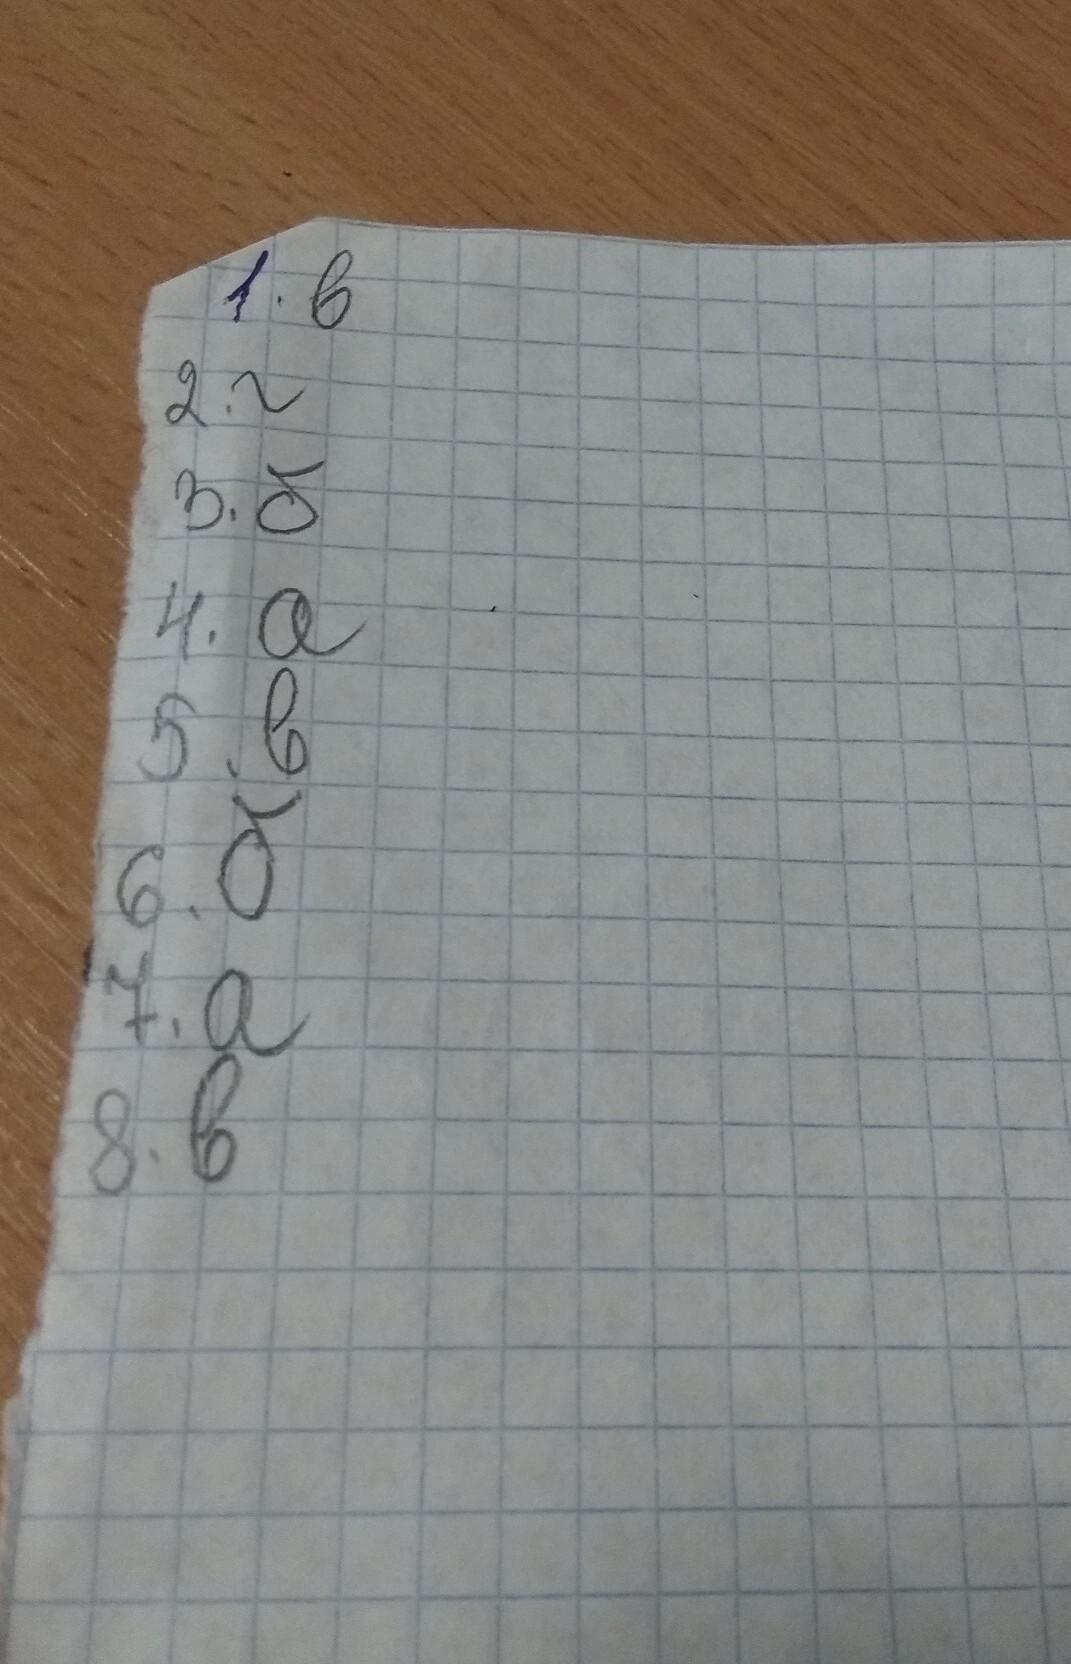 1. в
2. г
3. б
4. а
5. в
6. б
7. а
8. в